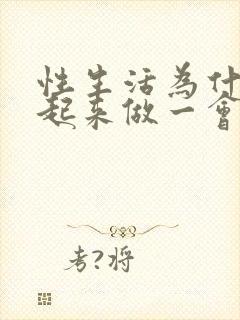 性生活為什
起来做一會
考?将